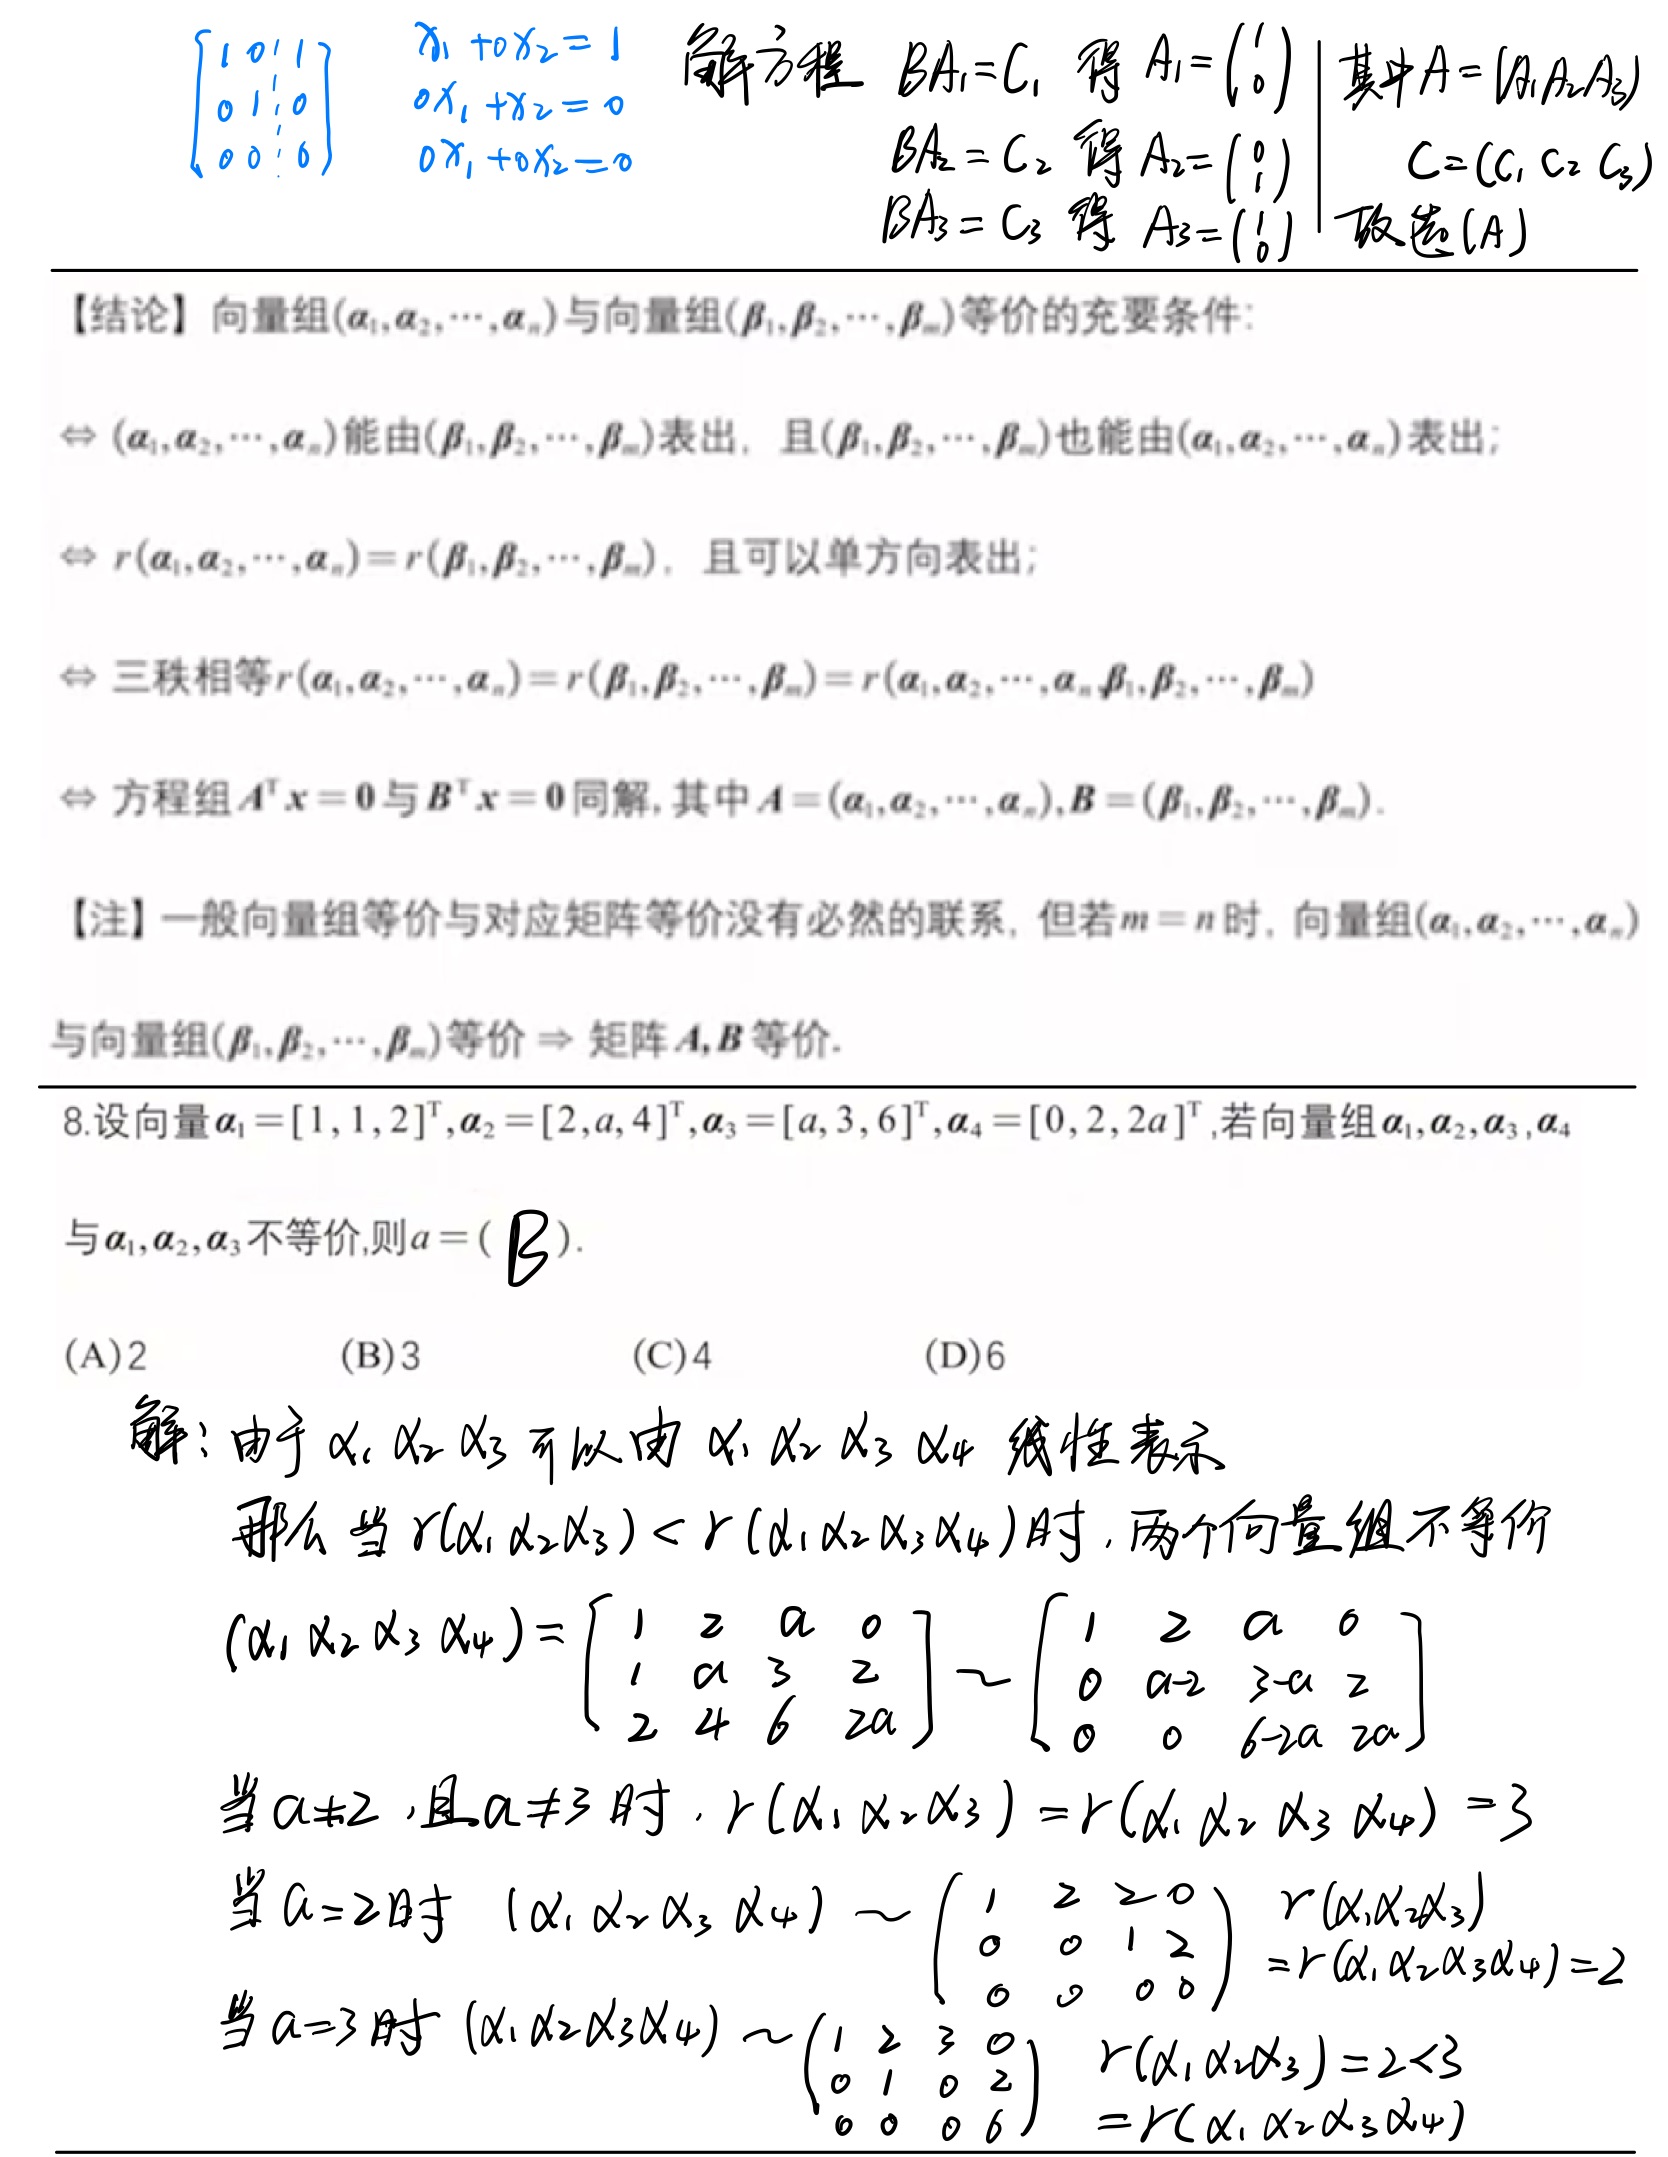 [1 0 ¦ 1
0 1 ¦ 0
0 0 ¦ 0]
x₁ + 0x₂ = 1
0x₁ + x₂ = 0
0x₁ + 0x₂ = 0
解方程 BA₁ = C₁ 得 A₁ = (1 0)
BA₂ = C₂ 得 A₂ = (0 1)
BA₃ = C₃ 得 A₃ = (1 0)
其中 A = (A₁ A₂ A₃)
C = (C₁ C₂ C₃)
故选(A)
【结论】向量组(α₁,α₂,⋯,αₙ)与向量组(β₁,β₂,⋯,βₘ)等价的充要条件:
⇔ (α₁,α₂,⋯,αₙ)能由(β₁,β₂,⋯,βₘ)表出, 且(β₁,β₂,⋯,βₘ)也能由(α₁,α₂,⋯,αₙ)表出;
⇔ r(α₁,α₂,⋯,αₙ)=r(β₁,β₂,⋯,βₘ), 且可以单方向表出;
⇔ 三秩相等r(α₁,α₂,⋯,αₙ)=r(β₁,β₂,⋯,βₘ)=r(α₁,α₂,⋯,αₙ,β₁,β₂,⋯,βₘ)
⇔ 方程组Aᵀx=0与Bᵀx=0同解,其中A=(α₁,α₂,⋯,αₙ),B=(β₁,β₂,⋯,βₘ).
【注】一般向量组等价与对应矩阵等价没有必然的联系, 但若m=n时, 向量组(α₁,α₂,⋯,αₙ)
与向量组(β₁,β₂,⋯,βₘ)等价 ⇒ 矩阵A,B等价.
8.设向量α₁=[1,1,2]ᵀ,α₂=[2,a,4]ᵀ,α₃=[a,3,6]ᵀ,α₄=[0,2,2a]ᵀ,若向量组α₁,α₂,α₃,α₄
与α₁,α₂,α₃不等价,则a=( B ).
(A)2 (B)3 (C)4 (D)6
解: 由于 α₁ α₂ α₃ 可以由 α₁ α₂ α₃ α₄ 线性表示
那么当 r(α₁ α₂ α₃) < r(α₁ α₂ α₃ α₄)时, 两个向量组不等价
(α₁ α₂ α₃ α₄) = [1 2 a 0
1 a 3 2
2 4 6 2a] ~ [1 2 a 0
0 a-2 3-a 2
0 0 6-2a 2a]
当 a≠2, 且a≠3 时, r(α₁ α₂ α₃) = r(α₁ α₂ α₃ α₄) = 3
当 a=2时 (α₁ α₂ α₃ α₄) ~ (1 2 2 0
0 0 1 2
0 0 0 0) r(α₁α₂α₃)
= r(α₁ α₂ α₃ α₄) = 2
当 a=3时 (α₁ α₂ α₃ α₄) ~ (1 2 3 0
0 1 0 2
0 0 0 6) r(α₁ α₂ α₃) = 2<3
= r(α₁ α₂ α₃ α₄)